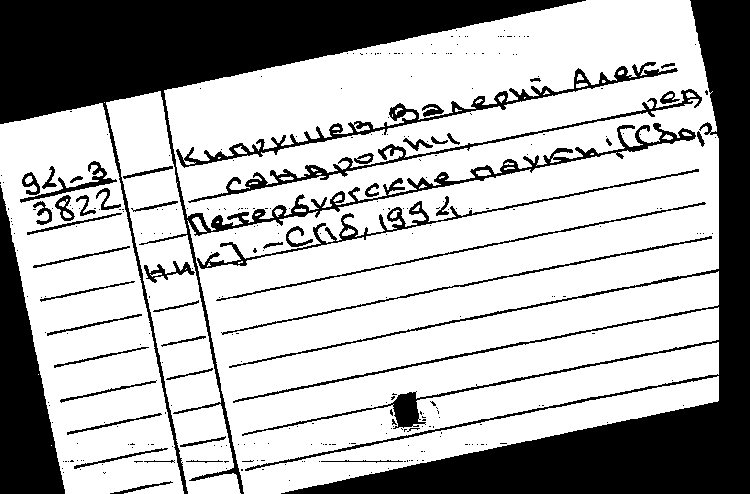 94-3
3822
Кипрушев, Валерий Алек=
сандрович, ред.
Петербургские пауки: [Сбор
ник]. - СПб, 1994.